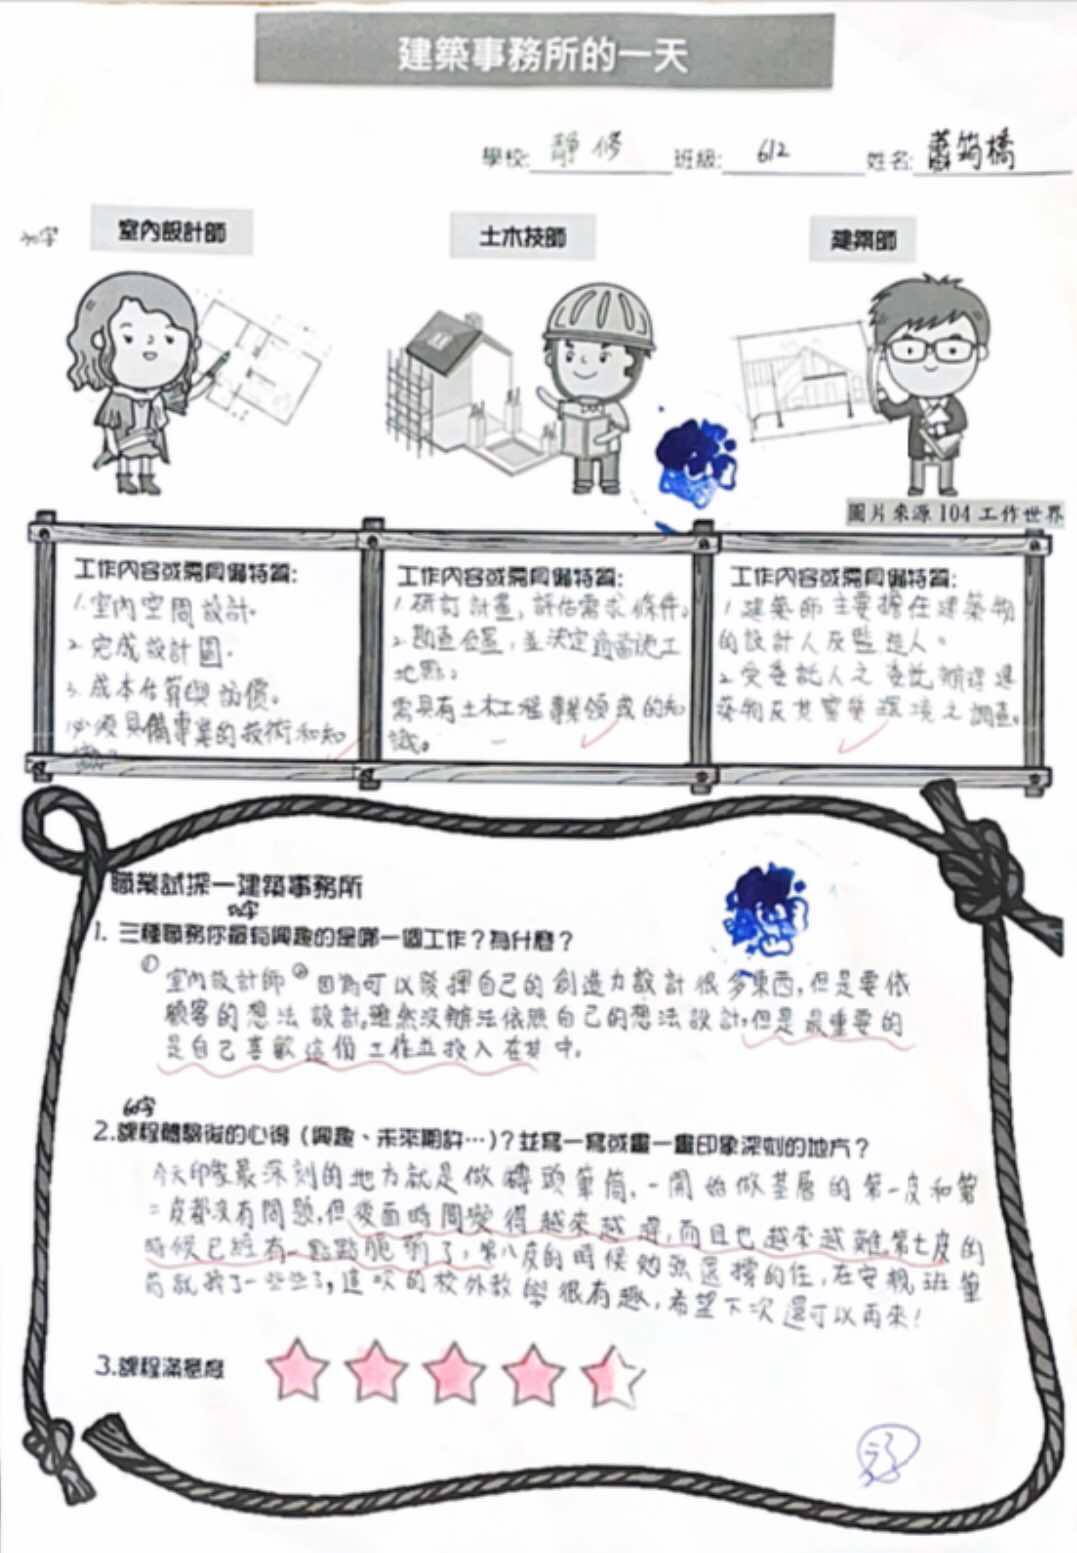 建築事務所的一天
學校: 靜修 班級: 612 姓名: 蕭筠橋
30字
室內設計師 土木技師 建築師
圖片來源 104 工作世界
工作內容或需具備特質:
1.室內空間設計。
2.完成設計圖。
3.成本估算與訪價。
必須具備專業的技術和知
識。
工作內容或需具備特質:
1.研訂計畫,評估需求條件。
2.勘查位置,並決定適當施工
地點。
需具有土木工程專業領域的知
識。
工作內容或需具備特質:
1.建築師主要擔任建築物
的設計人及監造人。
2.受委託人之委託辦理建
築物及其實質環境之調查。
職業試探—建築事務所
50字
1. 三種職務你最有興趣的是哪一個工作？為什麼？
①室內設計師②因為可以發揮自己的創造力設計很多東西,但是要依
顧客的想法設計,雖然沒辦法依照自己的想法設計,但是最重要的
是自己喜歡這個工作並投入在其中。
60字
2.課程體驗後的心得（興趣、未來期許…）？並寫一寫或畫一畫印象深刻的地方？
今天印象最深刻的地方就是做磚頭筆筒,一開始做基層的第一皮和第
二皮都沒有問題,但後面時間變得越來越趕,而且也越來越難,第七皮的
時候已經有一點點脆弱了,第八皮的時候勉強還撐的住,在安親班筆
筒就拆了一些些了,這次的校外教學很有趣,希望下次還可以再來!
3.課程滿意度